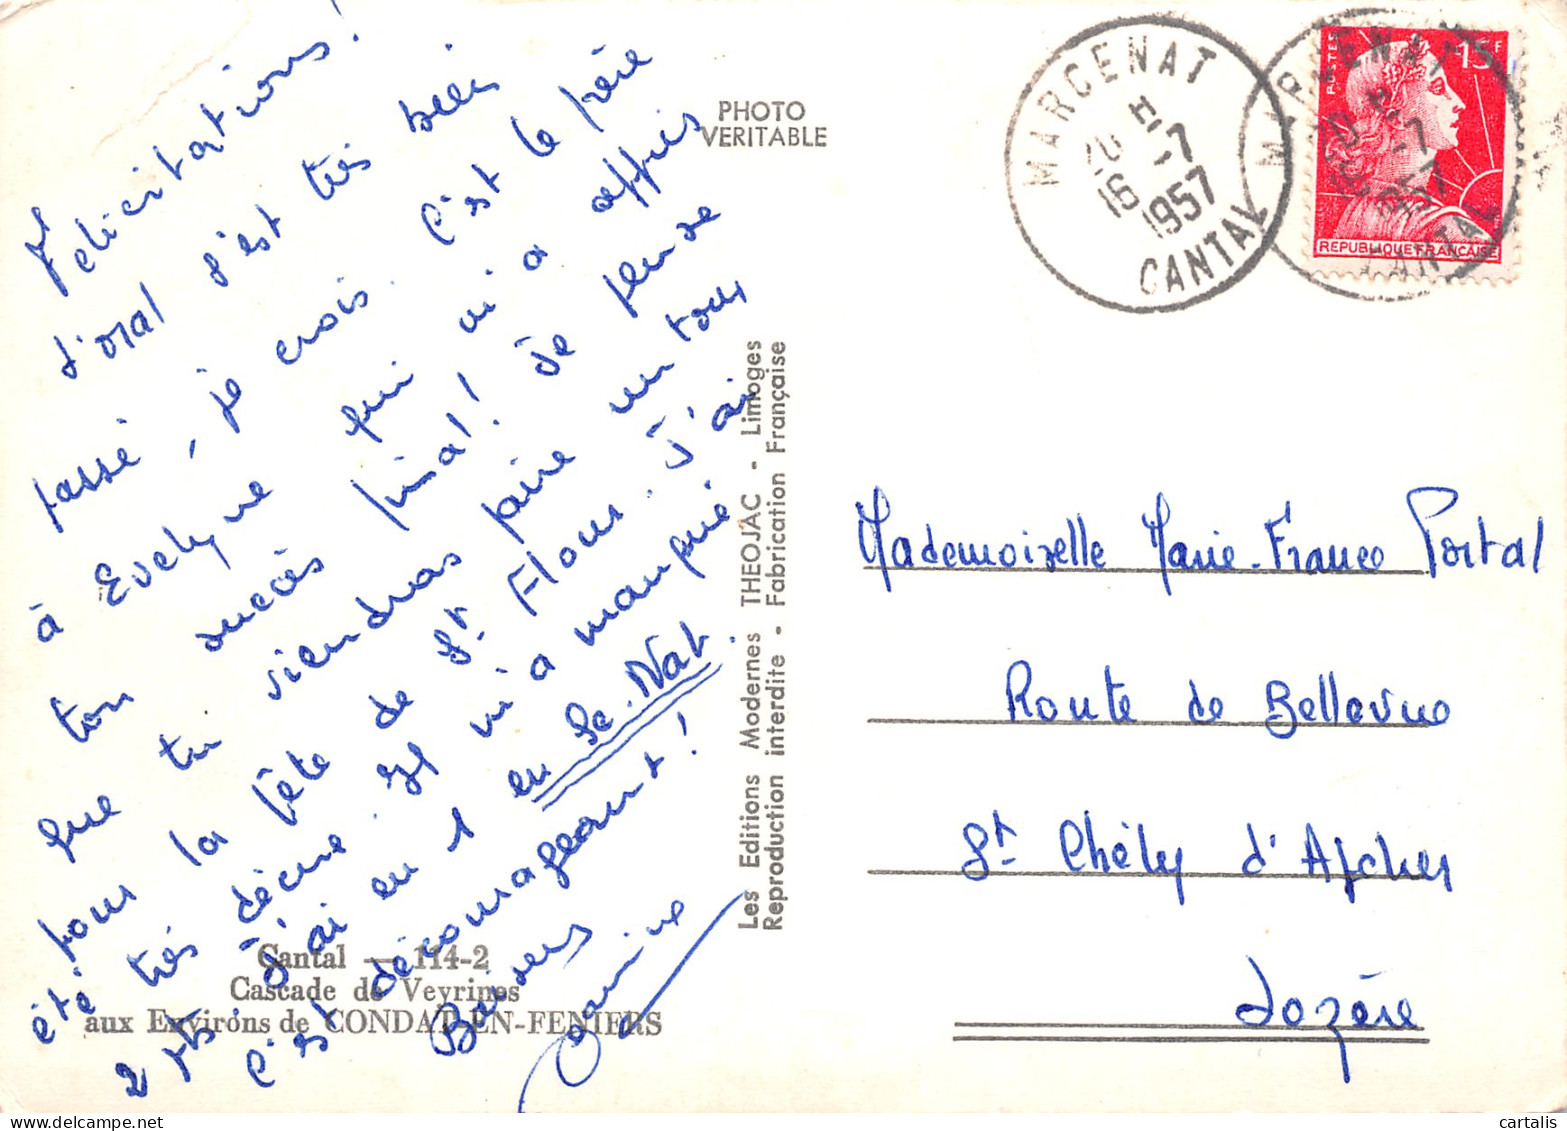 Félicitations !
L'oral s'est très bien
passé, je crois. C'est le frère
à Evelyne qui m'a appris
ton succès final ! Je pense
que tu viendras faire un tour
pour la fête de St Flour. J'ai
été très déçue. Il m'a manqué
2 pts. J'ai eu 1 en Sc. Nat.
C'est décourageant !
Baisers
PHOTO
VERITABLE
Les Editions Modernes THEOJAC - Limoges
Reproduction interdite - Fabrication Française
Cantal — 114-2
Cascade de Veyrines
aux Environs de CONDAT-EN-FENIERS
MARCENAT
20 H
16 -7
1957
CANTAL
MARCENAT
20 H
16 -7
1957
CANTAL
POSTES
15F
REPUBLIQUE FRANÇAISE
Mademoiselle Marie-France Portal
Route de Bellevue
St Chély d'Apcher
Lozère
cartalis